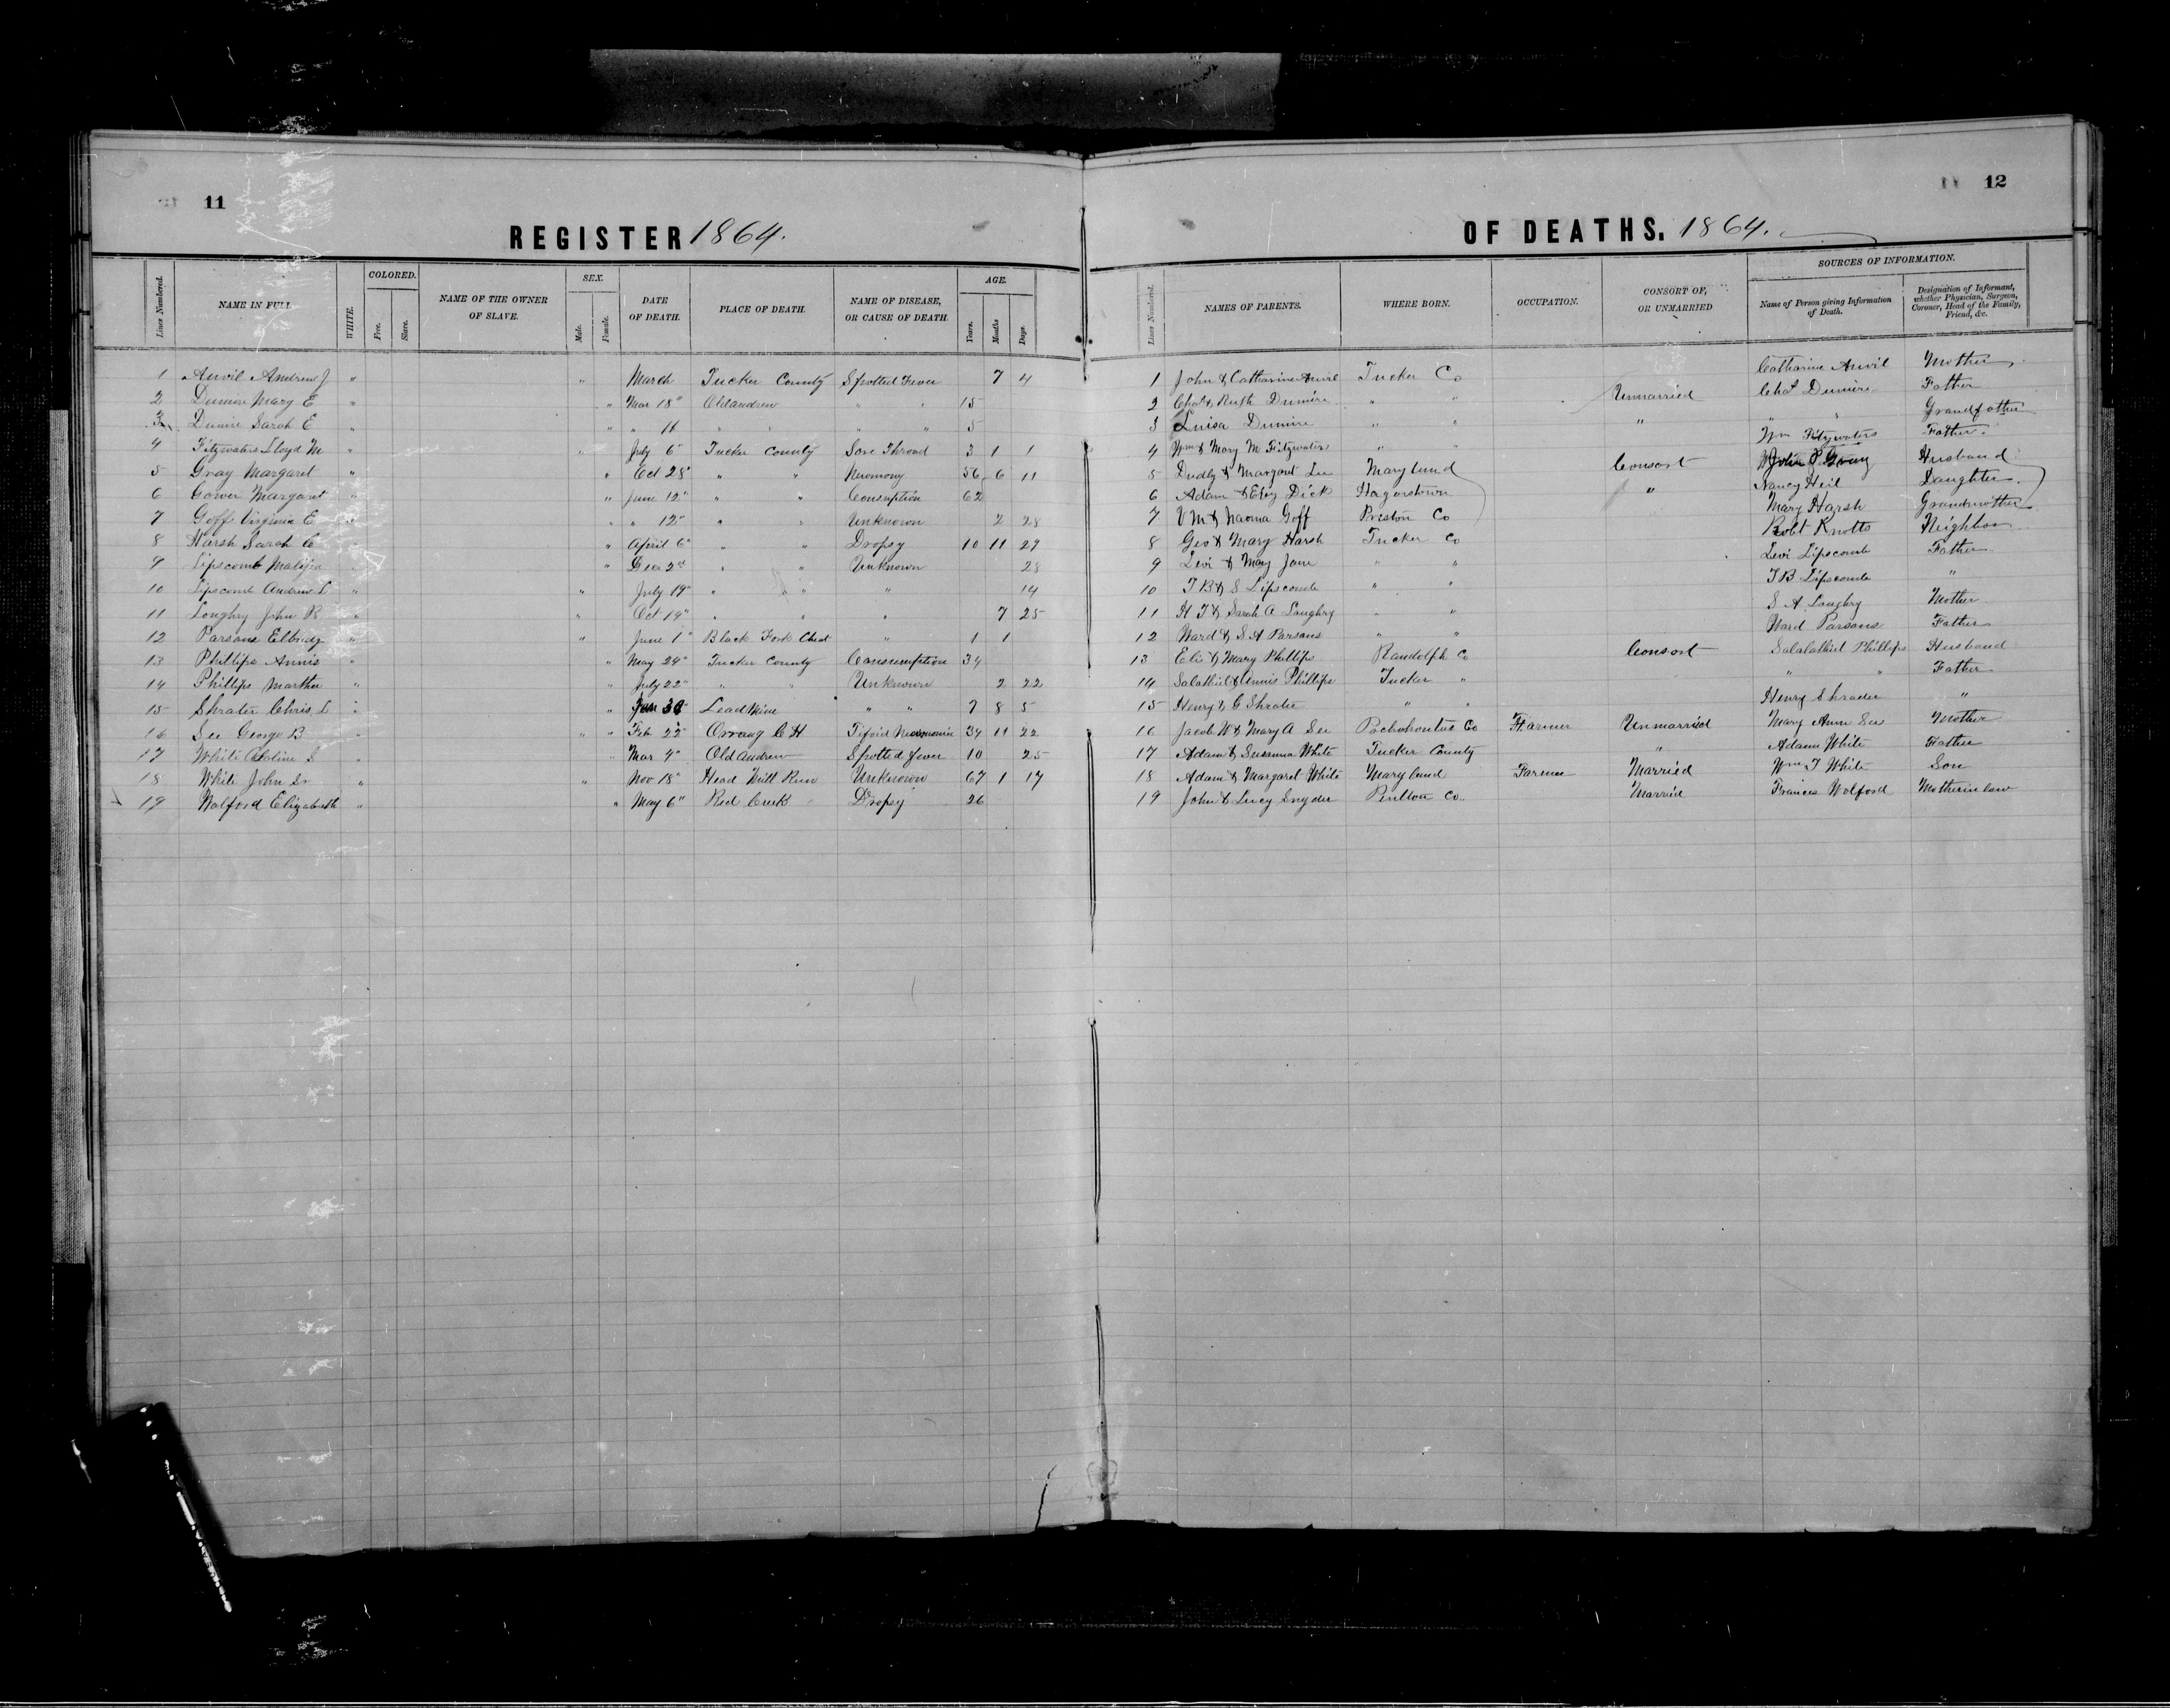 11
REGISTER 1864.
Lines Numbered. NAME IN FULL WHITE. COLORED. Free. Slave. NAME OF THE OWNER OF SLAVE. SEX. Male. Female. DATE OF DEATH. PLACE OF DEATH. NAME OF DISEASE, OR CAUSE OF DEATH. AGE. Years. Months Days.
1 Anvil Andrew J " " March Tucker County Spotted Fever 7 4
2 Dumire Mary E " " Mar 18" Old andrew " " 15
3 Dumire Sarah E " " " 11 " " " " 5
4 Fitzwaters Lloyd M " " July 6" Tucker County Sore Throad 3 1 1
5 Gray Margaret " " Oct 28" " " Neumony 56 6 11
6 Gower Margaret " " June 12" " " Consuption 62
7 Goff Virginia E " " " 12" " " Unknown 2 28
8 Harsh Sarah C " " April 6" " " Dropsy 10 11 29
9 Lipscomb " " 2nd " " Unknown 28
10 Lipscomb Andrew L " " July 19" " " " 14
11 Loughry John R " " Oct 14" " " " 7 25
12 Parsons Elbridg " " June 1" Black Fork " 1 1
13 Phillips Annis " " May 24" Tucker County Consumption 34
14 Phillips Martha " " July 22" " " Unknown 2 22
15 Shrater Chris L " " Lead Mine " " 7 8 5
16 See George B " " Feb 22" Orrang C H Tifoid 34 11 22
17 White S " " Mar 4" Old Andrew Spotted fever 10 25
18 White John Sr " " Nov 18" Head Mill Run Unknown 67 1 17
19 Wolford Elizabeth " " May 6" Red Creek Dropsy 26
12
OF DEATHS. 1864.
Lines Numbered. NAMES OF PARENTS. WHERE BORN. OCCUPATION. CONSORT OF, OR UNMARRIED SOURCES OF INFORMATION. Name of Person giving Information of Death. Designation of Informant, whether Physician, Surgeon, Coroner, Head of the Family, Friend, &c.
1 John & Catharine Anvil Tucker Co Catharine Anvil Mother
2 Chas & Ruth Dumire " " Unmarried Chas Dumire Father
3 Luisa Dumire " " " " " Grandfather
4 Wm & Mary M Fitzwater " " Wm Fitzwaters Father
5 Dudly & Margaret Lee Maryland Consort John P. Gray Husband
6 Adam & Eliz Dick Hagerstown " Nancy Heil Daughter
7 V M & Naoma Goff Preston Co Mary Harsh Grandmother
8 Geo & Mary Harsh Tucker Co Robt Knotts Neighbor
9 Levi & Mary Jane " " Levi Lipscomb Father
10 J B & S Lipscomb " " J B Lipscomb "
11 H T & Sarah A Loughry " " S A Loughry Mother
12 Ward & S A Parsons " " Ward Parsons Father
13 Eli & Mary Phillips Randolph Co Consort Salalathiel Phillips Husband
14 Salathiel & Annis Phillips Tucker " " " Father
15 Henry & G Shrater " " Henry Shrader "
16 Jacob W & Mary A See Pochohontus Co Farmer Unmarried Mary Ann See Mother
17 Adam & Susanna White Tucker County " Adam White Father
18 Adam & Margaret White Maryland Farmer Married Wm T White Son
19 John & Lucy Snyder Co. Married Frances Wolford Mother in law